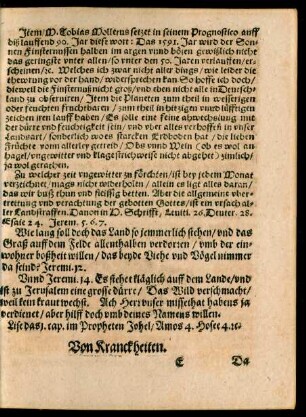 Item/ M. Tobias Mollerus setzt in seinem Prognostico auff
diß lauffend 90. Jar diese wort: Das 1591. Jar wird der Son-
nen Finsternussen halben im argen vnnd bösen gewißlich nicht
das geringste vnter allen/ so vnter den 50. Jaren verlauffen/ er-
scheinen/ ꝛc. Welches ich zwar nicht aller dings/ wie leider die
thewrung vor der hand/ widersprechen kan So hoffe ich doch/
dieweil die Finsternuß nicht groß/ vnd eben nicht alle in Deutsch-
land zu obseruiren/ Item die Planeten zum theil in weßerigen
oder feuchten fruchtbarn/ zum theil in hitzigen vnnd lüfftigen
zeichen jren lauff haben/ Es solle eine feine abwechslung mit
der dürre vnd feuchtigkeit sein/ vnd vber alles verhoffen in vnser
Landsart/ sonderlich wo es starcken Erdboden hat/ die lieben
Früchte vom allerley getreid/ Obs vnnd Wein (ob es wol an
hagel/ vngewitter vnd klagestrichweise nicht abgehet) zimlich/
ja wol gerathen.
Zu welcher zeit vngewitter zu förchten/ ist bey jedem Monat
verzeichnet/ mags nicht widerholen/ allein es ligt alles daran/
das wir buß thun vnd fleissig beten. Aber die allgemeine vber-
trettung vnd verachtung der gebotten Gottes/ ist ein vrsach al-
ler Landstraffen. Canon in D. Schrifft/ Leuit. 26. Deuter. 28.
Esaie 24. Jerem. 5. 6. 7.
Wie lang soll doch das Land so jemmerlich stehen/ vnd das
Graß auff dem Felde allenthalben verdorren/ vmb der ein-
wohner boßheit willen/ das beyde Viehe vnd Vögel nimmer
da seind? Jerem. 12.
Vnnd Jerem. 14. Es stehet kläglich auff dem Lande/ vnd
ist zu Jerusalem eine grosse dürre/ Das Wild verschmacht/
weil kein kraut wechst. Ach Herr vnser missethat habens ja
verdienet/ aber hilff doch vmb deines Namens willen.
Lise das 1. cap. im Propheten Johel/ Amos 4. Hosee 4. ꝛc.
Von Kranckheiten.
E Da